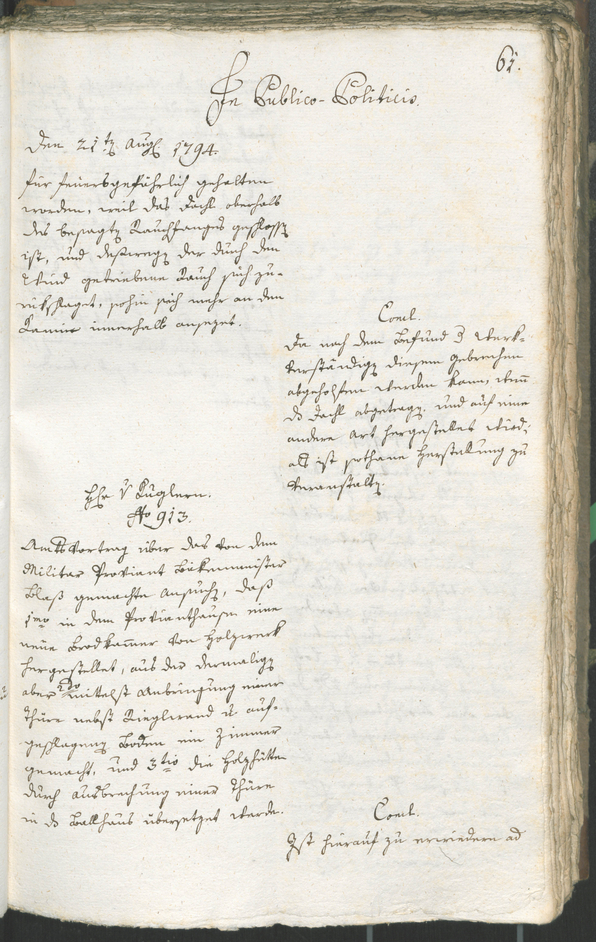 61.
In Publico-Politicis.
Den 21t. Aug. 1794.
für feuersgefährlich gehalten
worden, weil das Dachl oberhalb
des besagt. Rauchfanges geschloss.
ist, und deßweg. der durch den
Wind getriebene Rauch sich zu-
rükschlaget, sohin sich mehr an den
Kamine innerhalb ansezet.
Concl.
Da nach dem Befund 3 Werk-
verständig. diesem Gebrechen
abgeholfen werden kann, wenn
ds Dachl abgetrag. und auf eine
andere Art hergestellet wird;
als ist sothane Herstellung zu
veranstalt.
Hr. v Kuglern.
No 913.
Amtsvortrag über das von dem
Militar Proviant Bäkenmeister
Blaß gemachte Ansuch., daß
1mo in dem Provianthause eine
neue Brodkammer von Holzwerk
hergestellet, aus der dermalig.
aber 2do mittelst Anbringung einer
Thüre nebst Rieglwand u. auf-
geschlagenen Boden ein Zimmer
gemacht, und 3tio die Holzhütte
durch Ausbrechung einer Thüre
in ds Ballhaus übersetzet werde.
Concl.
Ist hierauf zu erwiedern ad